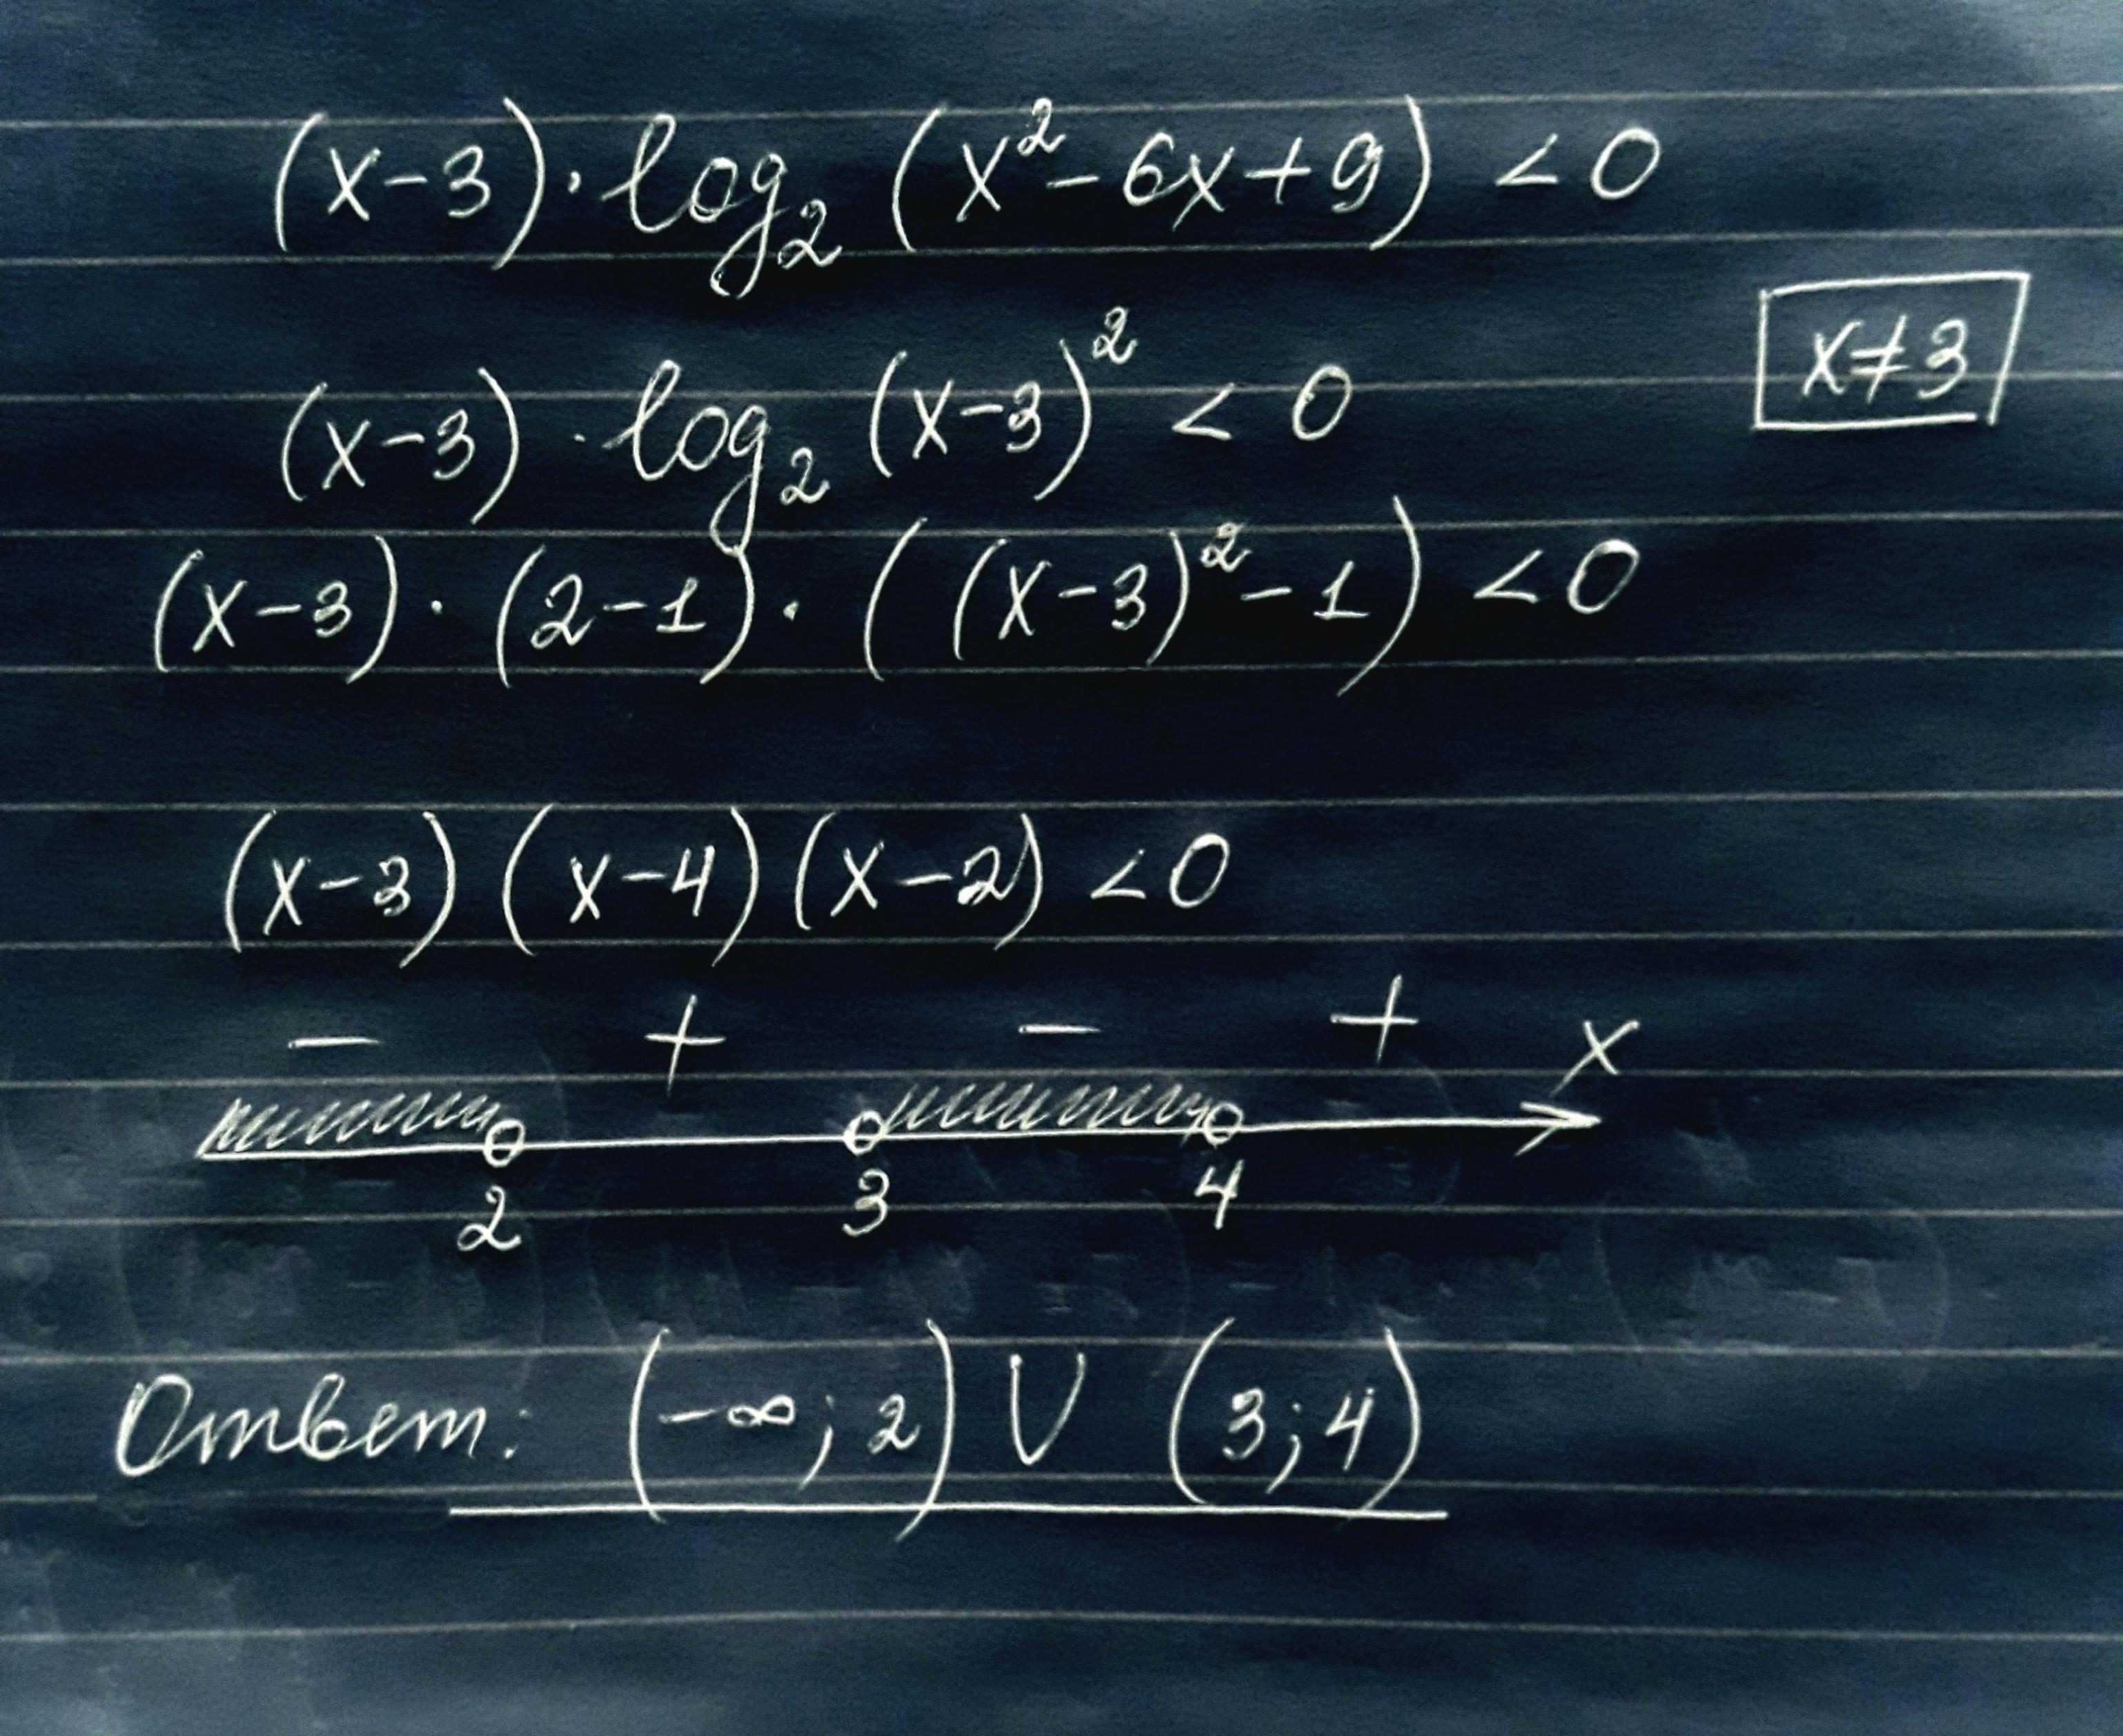 (x-3)·log₂(x²-6x+9)<0
x≠3
(x-3)·log₂(x-3)²<0
(x-3)·(2-1)·((x-3)²-1)<0
(x-3)(x-4)(x-2)<0
- + - + x
2 3 4
Ответ: (-∞;2)∪(3;4)